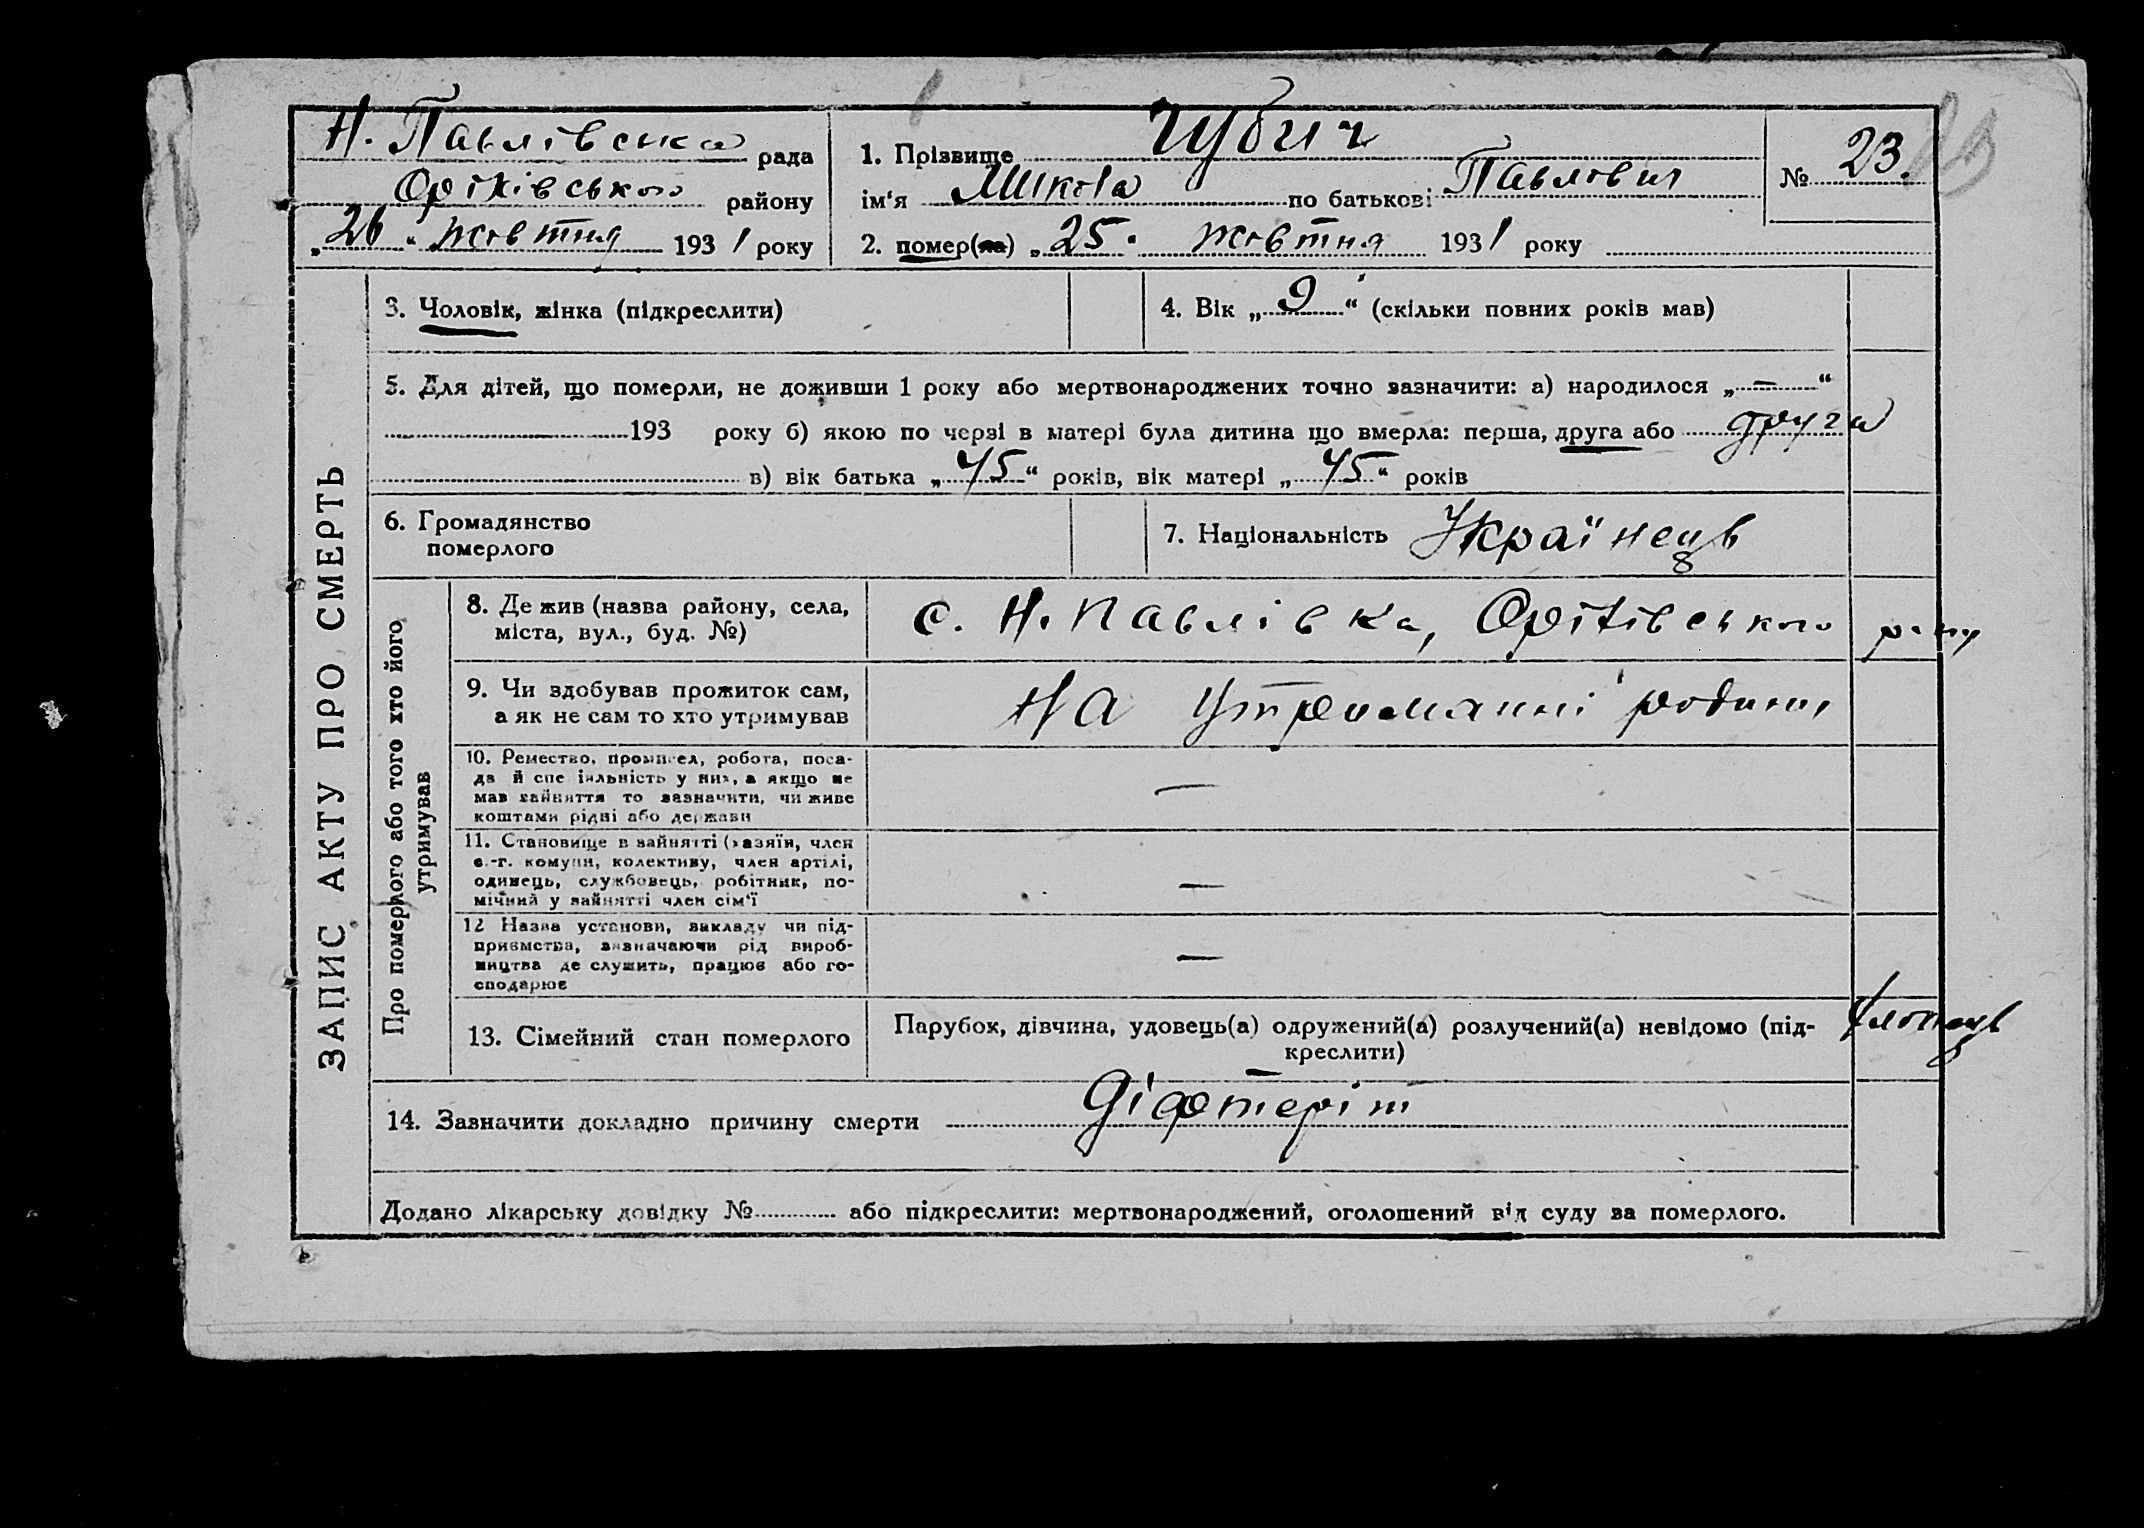 Н. Павлівська рада
Оріхівського району
„26“ жовтня 1931 року
1. Прізвище Чубич
ім'я Мікола по батькові Павлович
№ 23.
2. помер(ла) „25“ жовтня 1931 року
ЗАПИС АКТУ ПРО СМЕРТЬ
3. Чоловік, жінка (підкреслити)
4. Вік „9“ (скільки повних років мав)
5. Для дітей, що померли, не доживши 1 року або мертвонароджених точно зазначити: а) народилося „—“
193 року б) якою по черзі в матері була дитина що вмерла: перша, друга або друга
в) вік батька „45“ років, вік матері „45“ років
6. Громадянство
померлого
7. Національність Українець
Про померлого або того хто його
утримував
8. Де жив (назва району, села,
міста, вул., буд. №)
с. Н. Павлівка, Оріхівського р-ну
9. Чи здобував прожиток сам,
а як не сам то хто утримував
на утриманні родини
10. Ремество, промисел, робота, поса-
да й спеціяльність у них, а якщо не
мав зайняття то зазначити, чи живе
коштами рідні або держави
—
11. Становище в зайнятті (хазяїн, член
с.-г. комуни, колективу, член артілі,
одинець, службовець, робітник, по-
мічний у зайнятті член сім'ї
—
12 Назва установи, закладу чи під-
приємства, зазначаючи рід вироб-
ництва де служить, працює або го-
сподарює
—
13. Сімейний стан померлого
Парубок, дівчина, удовець(а) одружений(а) розлучений(а) невідомо (під-
креслити)
хлопець
14. Зазначити докладно причину смерти Діфтеріт
Додано лікарську довідку № або підкреслити: мертвонароджений, оголошений від суду за померлого.